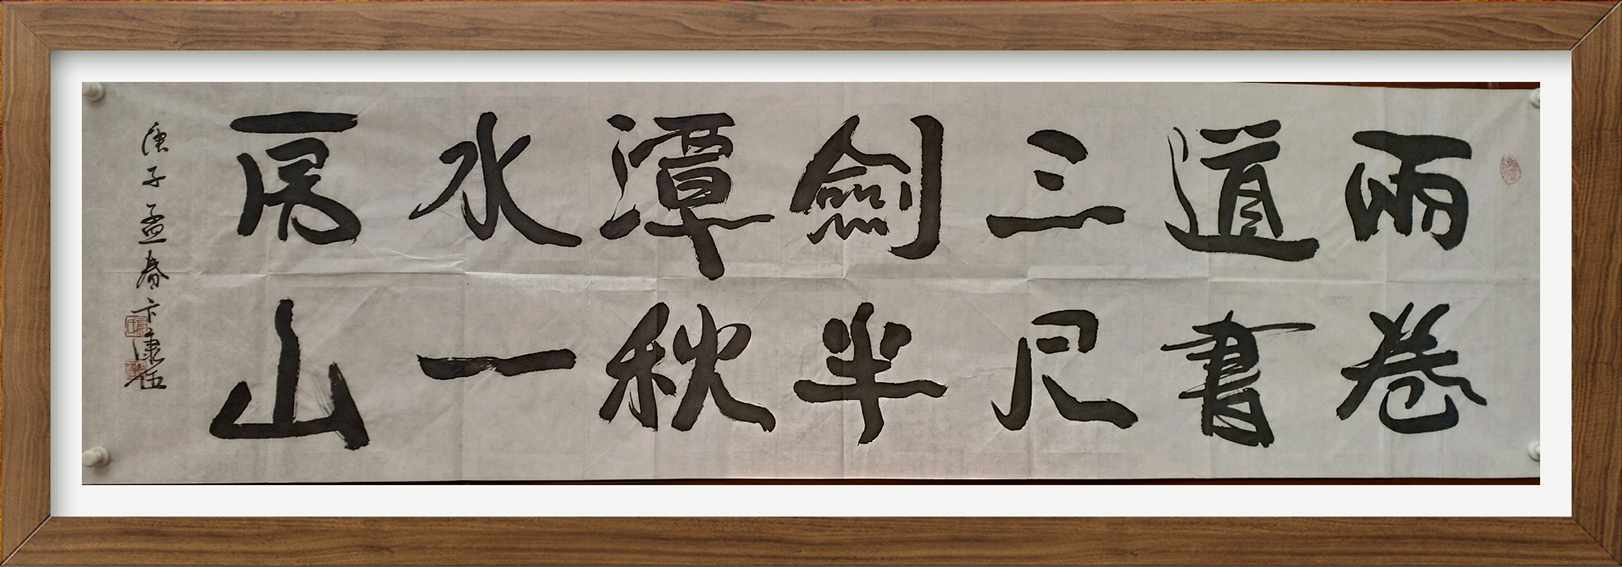 兩卷
道書
三尺
劍半
潭秋
水一
房山
庚子孟春卞康伍